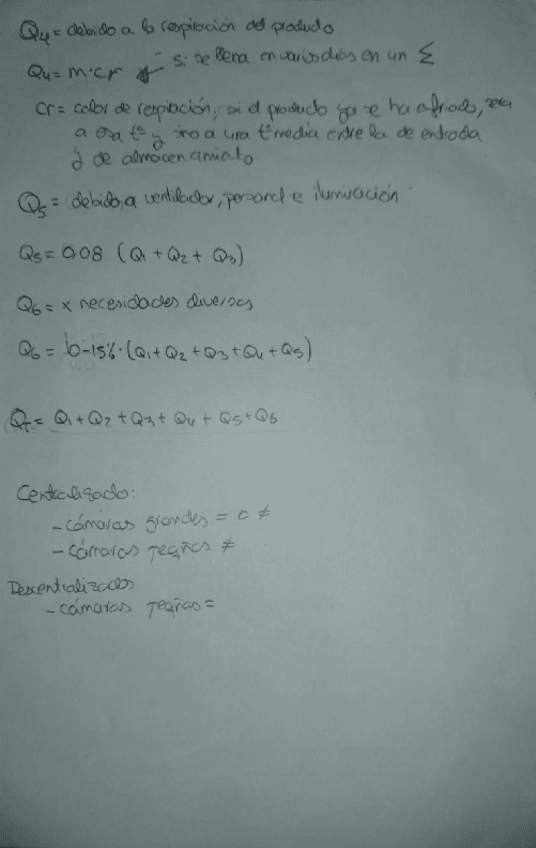 Q4 = debido a la respiración del producto
Q4 = m·cr * - si se llena en varios días en un Σ
cr = calor de respiración, si el producto ya se ha enfriado, sera
a esa tª y sino a una tª media entre la de entrada
y de almacenamiento
Q5 = debido a ventilador, personal e iluminación
Q5 = 0.08 (Q1 + Q2 + Q3)
Q6 = x necesidades diversas
Q6 = 10-15% · (Q1 + Q2 + Q3 + Q4 + Q5)
QT = Q1 + Q2 + Q3 + Q4 + Q5 + Q6
Centralizado:
- cámaras grandes = o ≠
- cámaras peqñas ≠
Descentralizados
- cámaras peqñas =